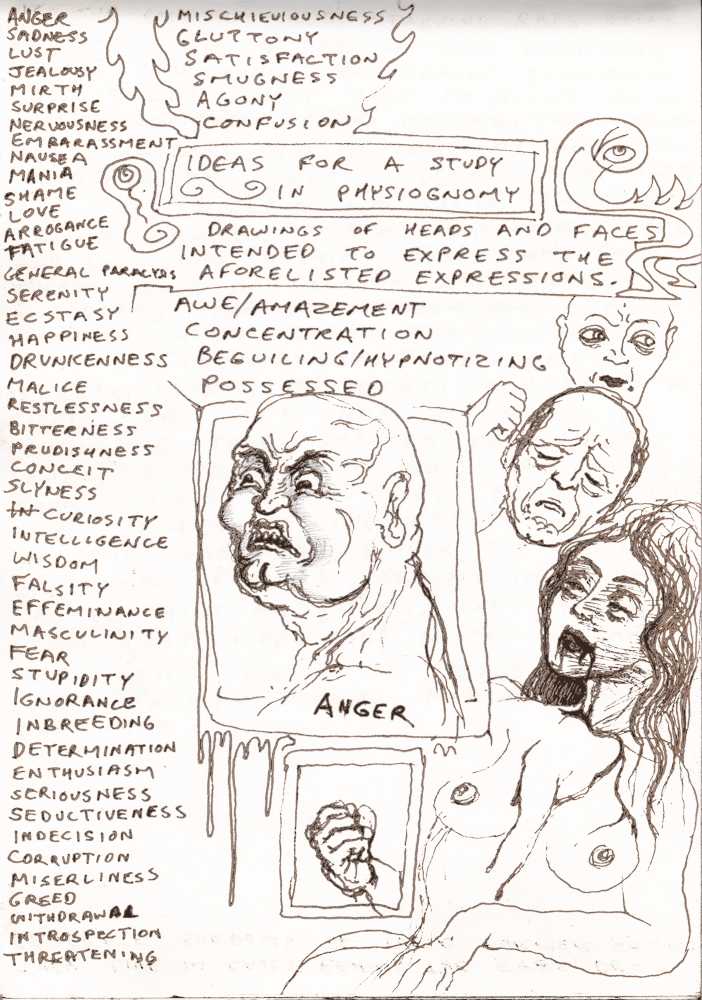 ANGER
SADNESS
LUST
JEALOUSY
MIRTH
SURPRISE
NERVOUSNESS
EMBARASSMENT
NAUSEA
MANIA
SHAME
LOVE
ARROGANCE
FATIGUE
GENERAL PARALYSIS
SERENITY
ECSTASY
HAPPINESS
DRUNKENNESS
MALICE
RESTLESSNESS
BITTERNESS
PRUDISHNESS
CONCEIT
SLYNESS
CURIOSITY
INTELLIGENCE
WISDOM
FALSITY
EFFEMINANCE
MASCULINITY
FEAR
STUPIDITY
IGNORANCE
INBREEDING
DETERMINATION
ENTHUSIASM
SERIOUSNESS
SEDUCTIVENESS
INDECISION
CORRUPTION
MISERLINESS
GREED
WITHDRAWAL
INTROSPECTION
THREATENING
MISCHIEVIOUSNESS
GLUTTONY
SATISFACTION
SMUGNESS
AGONY
CONFUSION
IDEAS FOR A STUDY
IN PHYSIOGNOMY
DRAWINGS OF HEADS AND FACES
INTENDED TO EXPRESS THE
AFORELISTED EXPRESSIONS.
AWE/AMAZEMENT
CONCENTRATION
BEGUILING/HYPNOTIZING
POSSESSED
ANGER